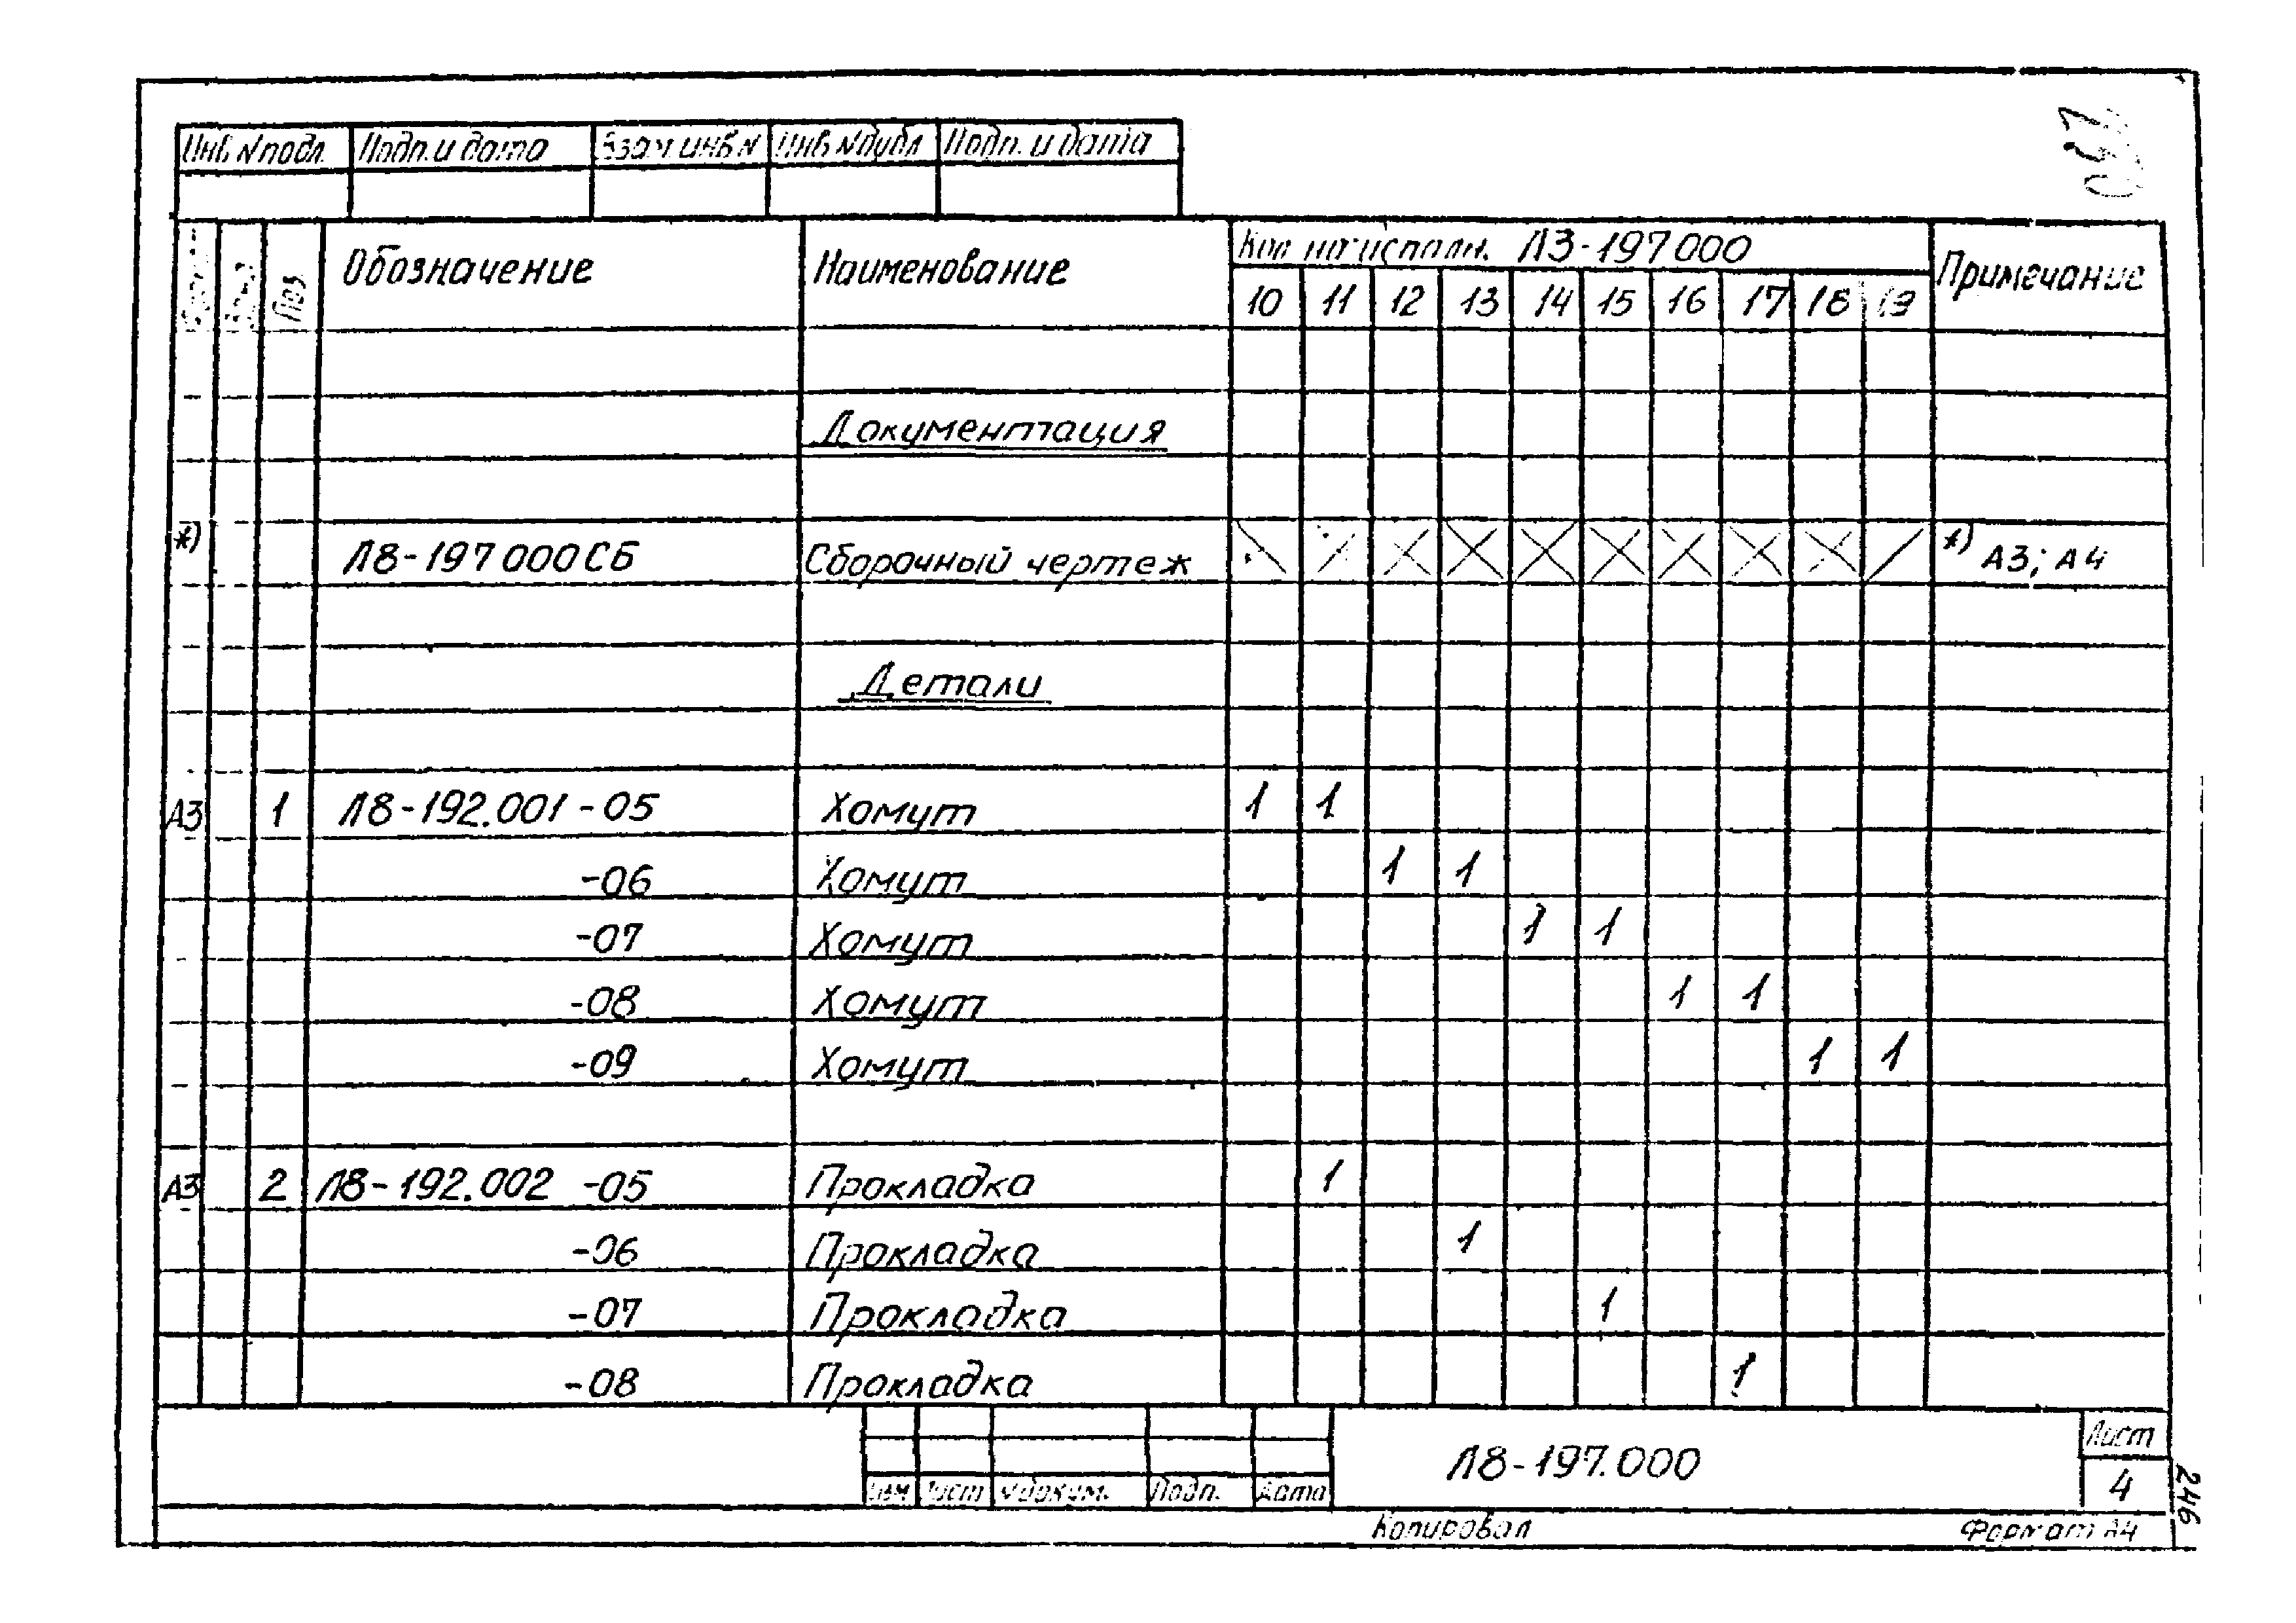 Инв.№подл. Подп.и дата Взам.инв№ Инв.№дубл Подп.и дата
Поз Обозначение Наименование Кол. на исполн. Л3-197000 Примечание
10 11 12 13 14 15 16 17 18 19
Документация
*) Л8-197000СБ Сборочный чертеж *) А3; А4
Детали
А3 1 Л8-192.001-05 Хомут 1 1
-06 Хомут 1 1
-07 Хомут 1 1
-08 Хомут 1 1
-09 Хомут 1 1
А3 2 Л8-192.002 -05 Прокладка 1
-06 Прокладка 1
-07 Прокладка 1
-08 Прокладка 1
Изм Лист №докум. Подп. Дата
Л8-197.000
Лист
4
246
Копировал Формат А4